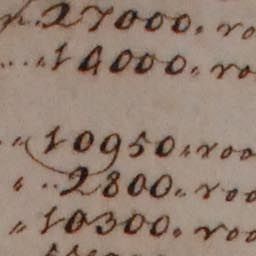 27000. roo
" 14000. roo
" 10950 " roo
" 2800 " roo
" 10300. roo